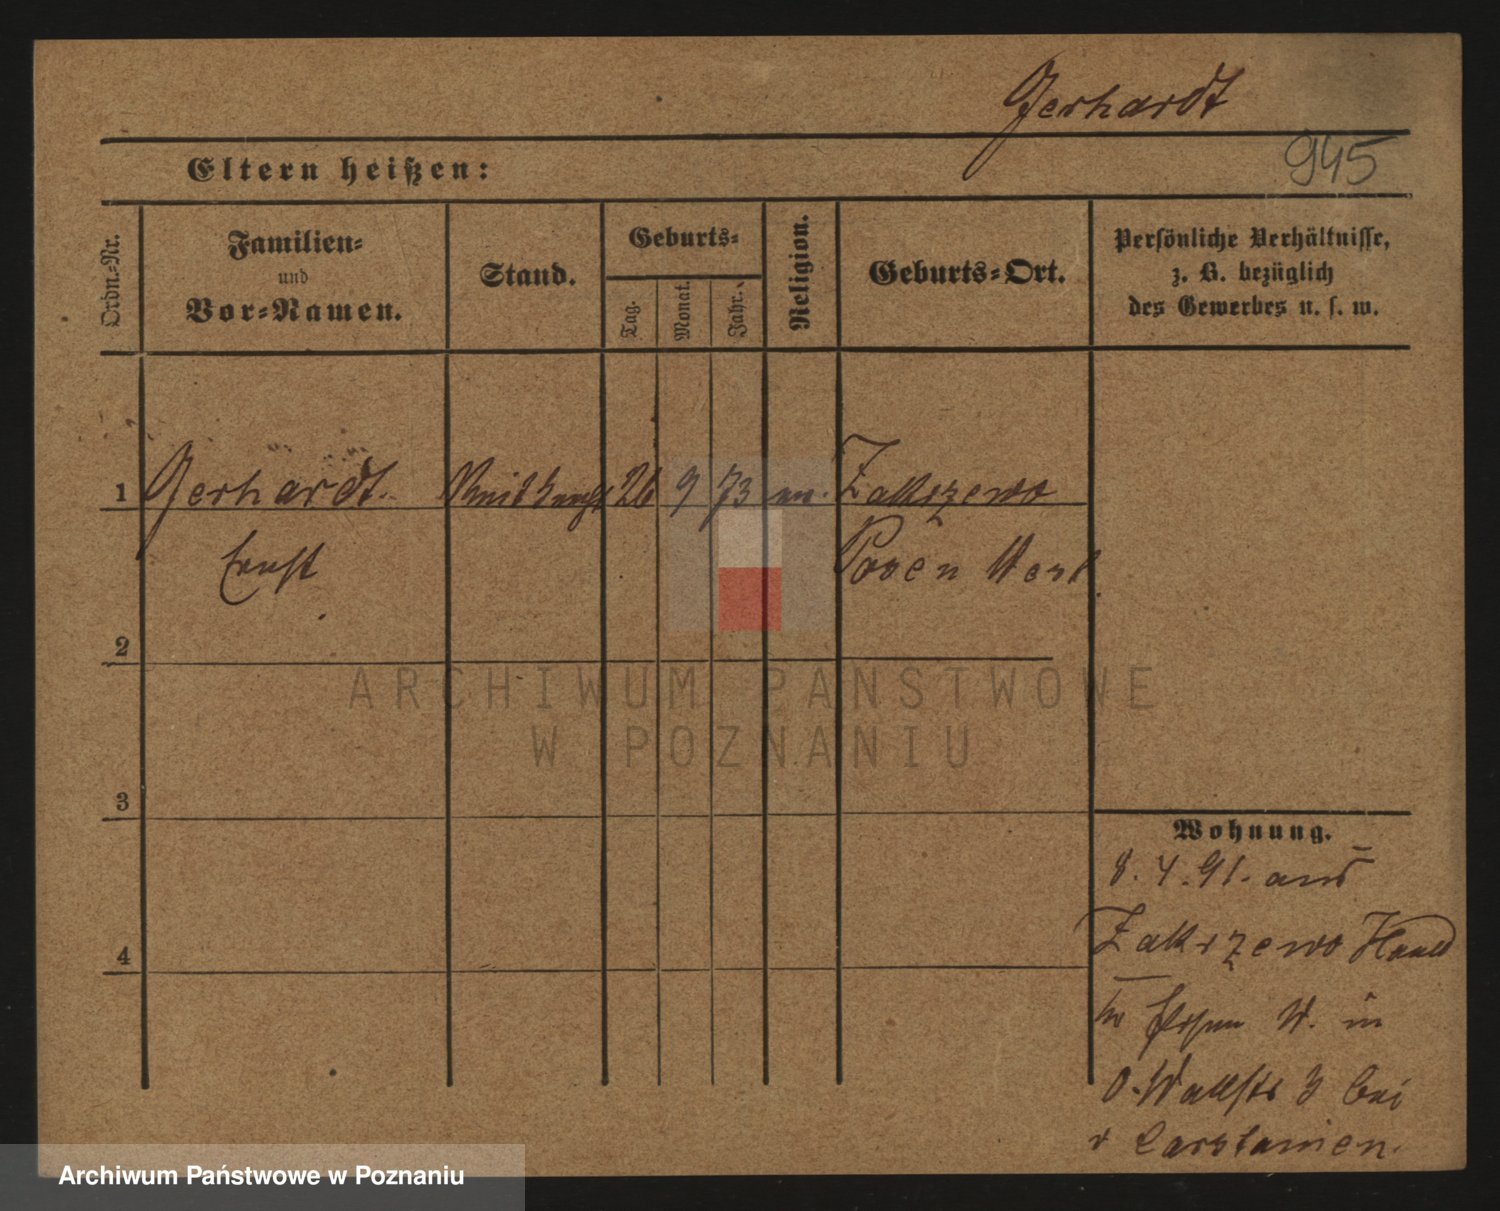 Gerhardt
945
Eltern heißen:
Ordn.-Nr.
Familien-
und
Vor-Namen.
Stand.
Geburts-
Tag.
Monat.
Jahr.
Religion.
Geburts-Ort.
Persönliche Verhältnisse,
z. B. bezüglich
des Gewerbes u. s. w.
1 Gerhardt 26 9 73 Zakrzewo
Ernst Posen West
2
3
4
Wohnung.
8. 4. 91. aus
Zakrzewo
Posen W. in
O. Wallstr 3 bei
ARCHIWUM PAŃSTWOWE
W POZNANIU
Archiwum Państwowe w Poznaniu